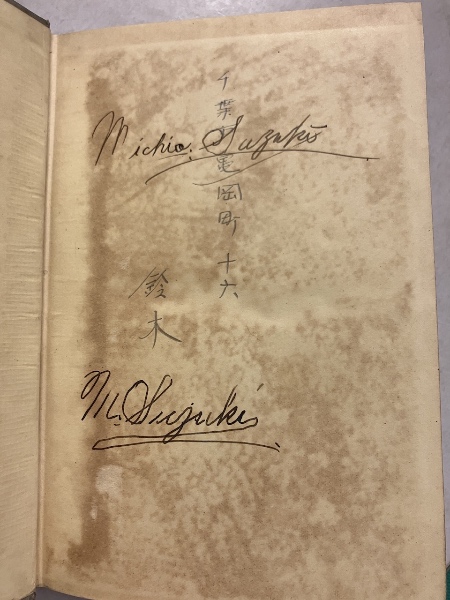 Michio. Suzuki
千葉市亀岡町 十六
鈴木
M. Suzuki